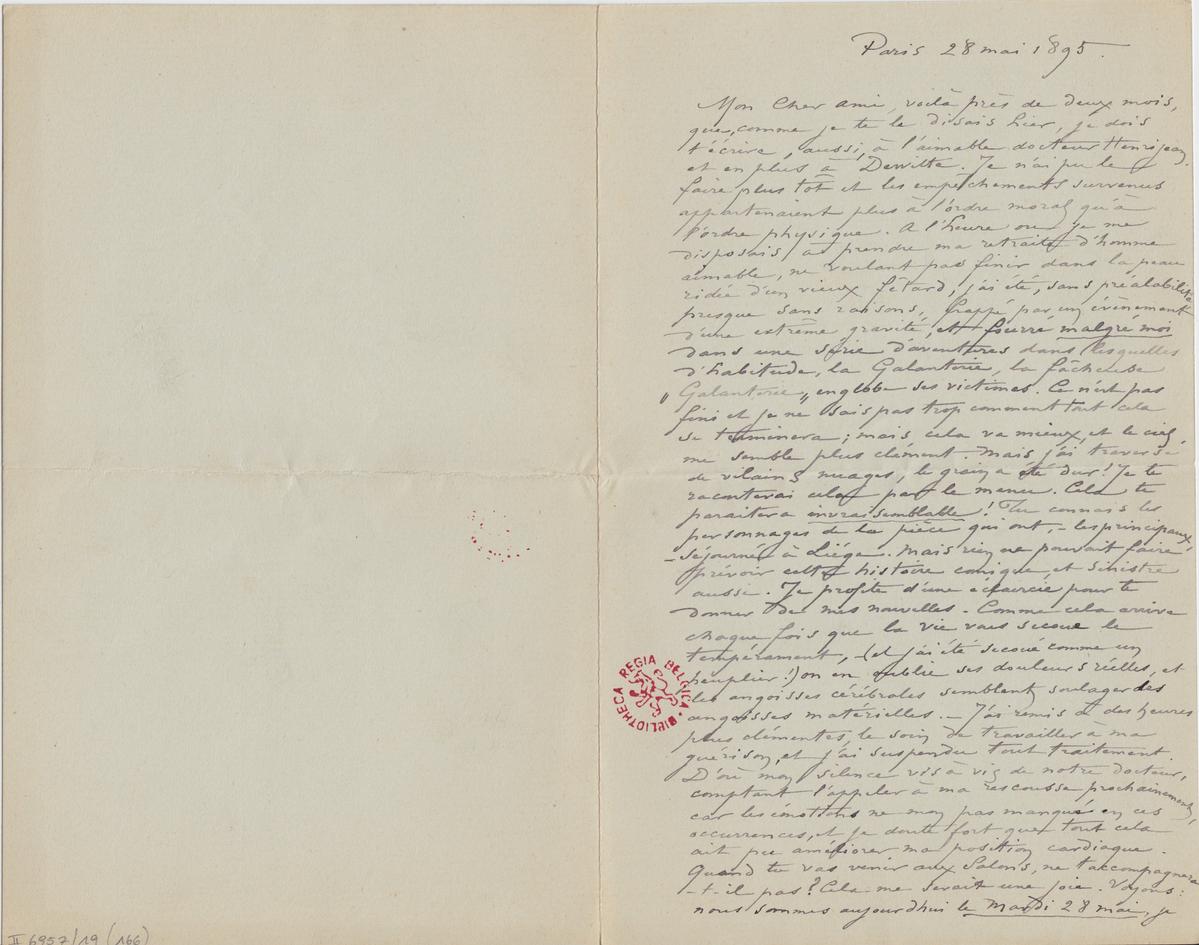 Paris 28 mai 1895.
Mon Cher ami, voilà près de deux mois,
que, comme je te le disais hier, je dois
t'écrire, aussi, à l'aimable docteur Henrijean,
et en plus à Dewitte. Je n'ai pu le
faire plus tôt et les empêchements survenus
appartenaient plus à l'ordre moral qu'à
l'ordre physique. A l'heure ou je me
disposais, à prendre ma retraite d'homme
aimable, ne voulant pas finir dans la peau
ridée d'un vieux fêtard, j'ai été, sans préalabilité
presque sans raisons, frappé par un évènement
d'une extrême gravité, et fourré malgré moi
dans une série d'aventures dans lesquelles
d'habitude, la Galanterie, la fâcheuse
„Galanterie„ englobe ses victimes. Ce n'est pas
fini et je ne sais pas trop comment tout cela
se terminera ; mais, cela va mieux, et le ciel
me semble plus clément. Mais j'ai traversé
de vilains nuages, le grain a été dur! Je te
raconterai cela par le menu. Cela te
paraitera invraisemblable! Tu connais les
personnages de la pièce qui ont, – les principaux,
– séjourné à Liége. Mais rien ne pouvait faire
prévoir cette histoire comique et sinistre
aussi. Je profite d'une éclaircie pour te
donner de mes nouvelles. Comme cela arrive
chaque fois que la vie vous secoue le
tempérament, – (et j'ai été secoué comme un
peuplier!) on en oublie ses douleurs réelles, et
les angoisses cérébrales semblent soulager des
angoisses matérielles. – J'ai remis à des heures
plus clémentes, le soin de travailler à ma
guérison, et j'ai suspendu tout traitement.
D'où mon silence vis à vis de notre docteur,
comptant l'appeler à ma rescousse prochainement,
car les émotions ne mon pas manqué en ces
occurrences, et je doute fort que tout cela
ait pu améliorer ma position cardiaque.
Quand tu vas venir aux Salons, ne t'accompagnera
-t-il pas? Cela me serait une joie. Voyons:
nous sommes aujourdhui le Mardi 28 mai, je
BIBLIOTHECA REGIA BELGICA
II 6957/19 (166)